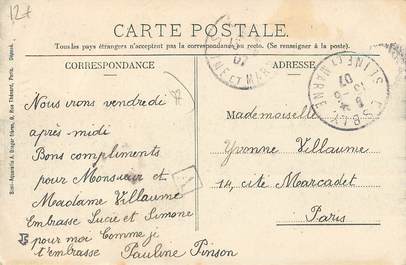 12+
CARTE POSTALE.
Tous les pays étrangers n'acceptent pas la correspondance au recto. (Se renseigner à la poste).
CORRESPONDANCE
ADRESSE
Nous irons vendredi
après-midi
Bons compliments
pour Monsieur et
Madame Villaume
Embrasse Lucie et Simone
pour moi Comme je
t'embrasse Pauline Pinson
Mademoiselle
Yvonne Villaume
14, cité Marcadet
Paris
ESBLY
SEINE ET MARNE
07
ET MARNE
07
A